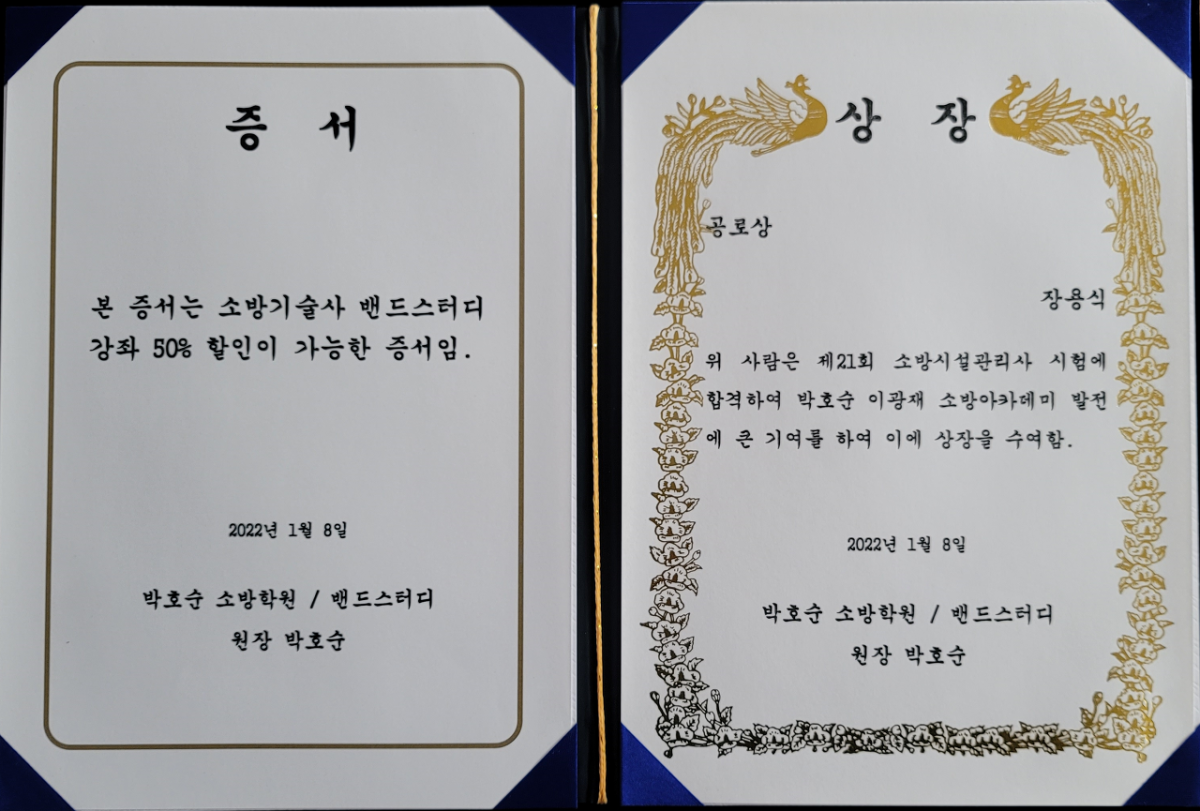 증 서
본 증서는 소방기술사 밴드스터디
강좌 50% 할인이 가능한 증서임.
2022년 1월 8일
박호순 소방학원 / 밴드스터디
원장 박호순
상 장
공로상
장용식
위 사람은 제21회 소방시설관리사 시험에
합격하여 박호순 이광재 소방아카데미 발전
에 큰 기여를 하여 이에 상장을 수여함.
2022년 1월 8일
박호순 소방학원 / 밴드스터디
원장 박호순